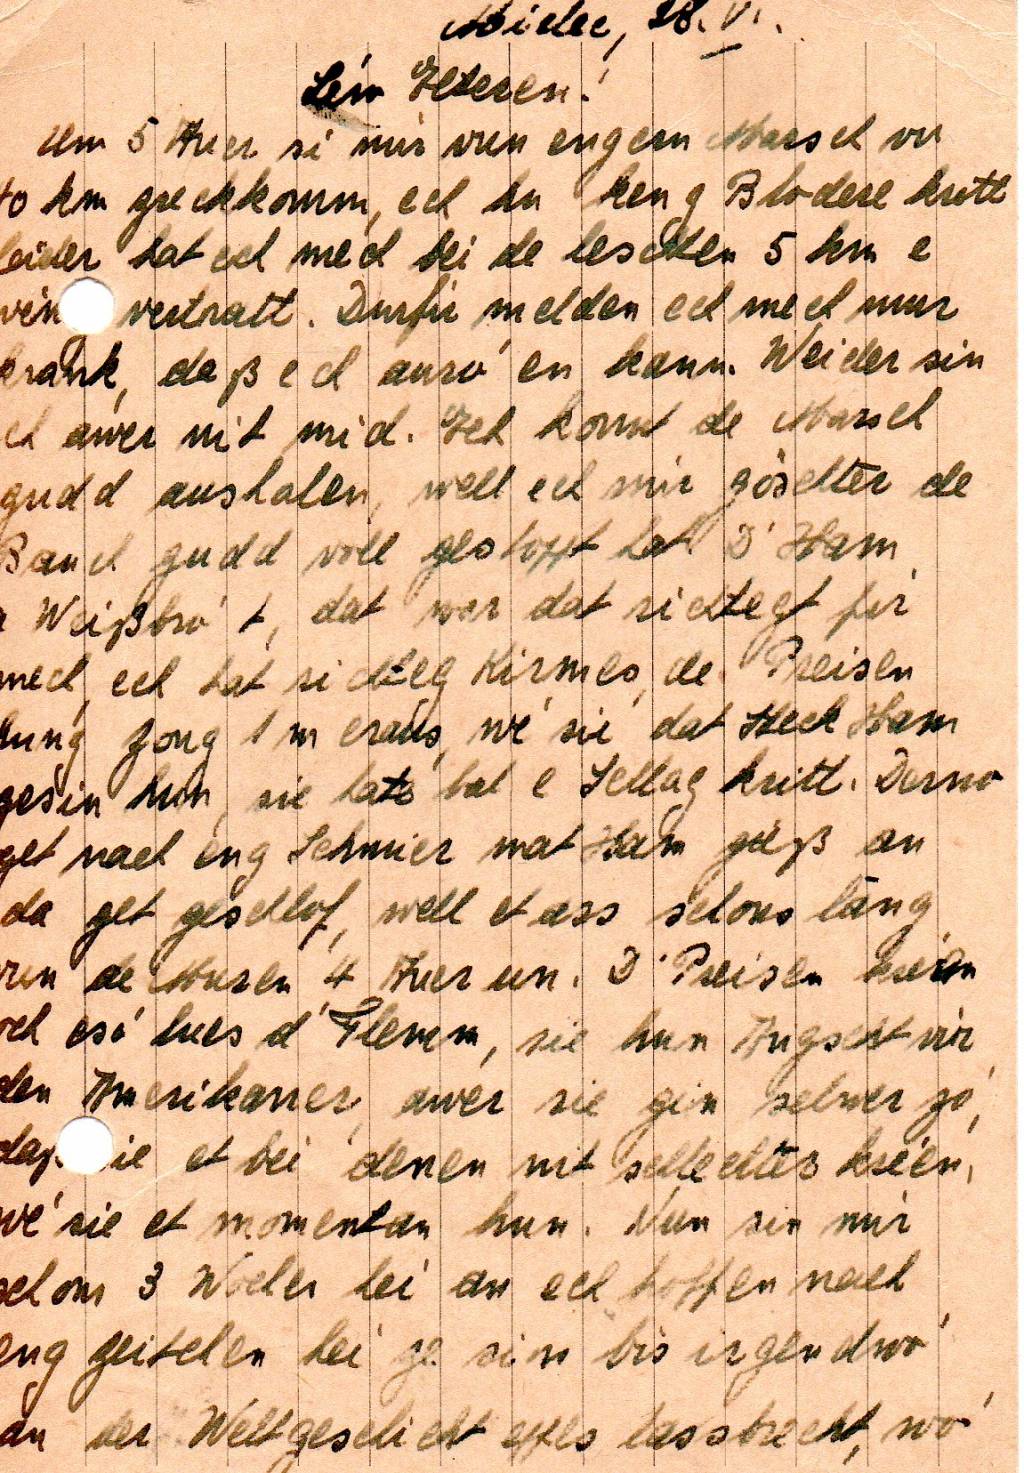 Mielec, 28. VI.
Léiw Elteren!
Um 5 Auer si mir vun engem Marsch vu
40 km zreckkomm, ech hu keng Blodere kritt
leider hat ech mech bei de leschten 5 km e
vertratt. Durfir melden ech mech mur
krank, daß ech auro'en kann. Weider sin
ech awer nit mid. Ech konnt de Marsch
gudd aushalen, well ech mir göschter de
Bauch gudd voll gestoppt hat. D'Ham
a Weißbro't, dat wor dat richtegt fir
mech, ech hat richteg Kirmes, de Preisen
hung Zong 1 m eraus, wé sie dat Steck Ham
gesin hun, sie hate bal e Schlag kritt. Derno
get nach eng Schmier mat Ham gäß an
da get geschlof, well et ass schons läng
vun de Muren 4 Auer un. D'Preisen kréien
och eso' lues d'Flemm, sie hun Angscht vir
den Amerikaner, awer sie gin selwer zo',
daß sie et bei denen nit schlechter kréien,
wé sie et momentan hun. Nun sin mir
schons 3 Wochen hei an ech hoffen nach
eng zeitchen hei ze sin bis irgendwo'
an der Weltgeschicht eppes lassbrecht, wo'